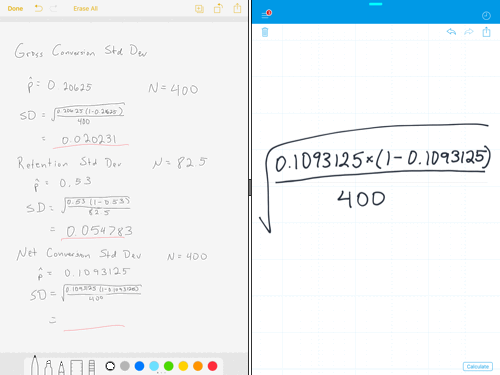 Done Erase All
Gross Conversion Std Dev
p̂ = 0.20625 N = 400
SD = √
400
= 0.020231
Retention Std Dev N = 82.5
p̂ = 0.53
SD = √0.53 (1-0.53)
82.5
= 0.054783
Net Conversion Std Dev N = 400
p̂ = 0.1093125
SD = √0.1093125 (1-0.1093125)
400
=
√0.1093125 × (1 - 0.1093125)
400
Calculate